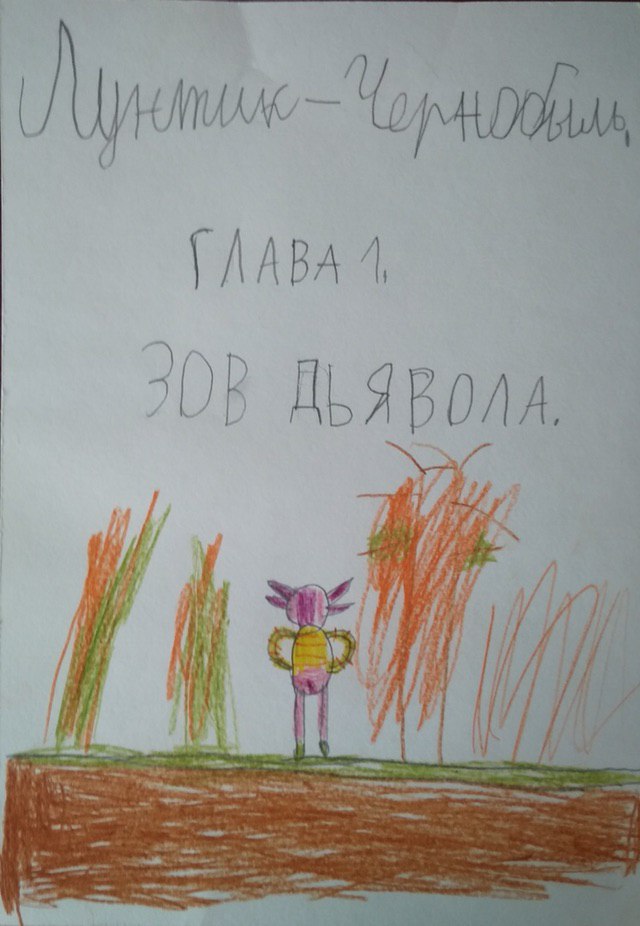 Лунтик-Чернобыль.
ГЛАВА 1.
ЗОВ ДЬЯВОЛА.